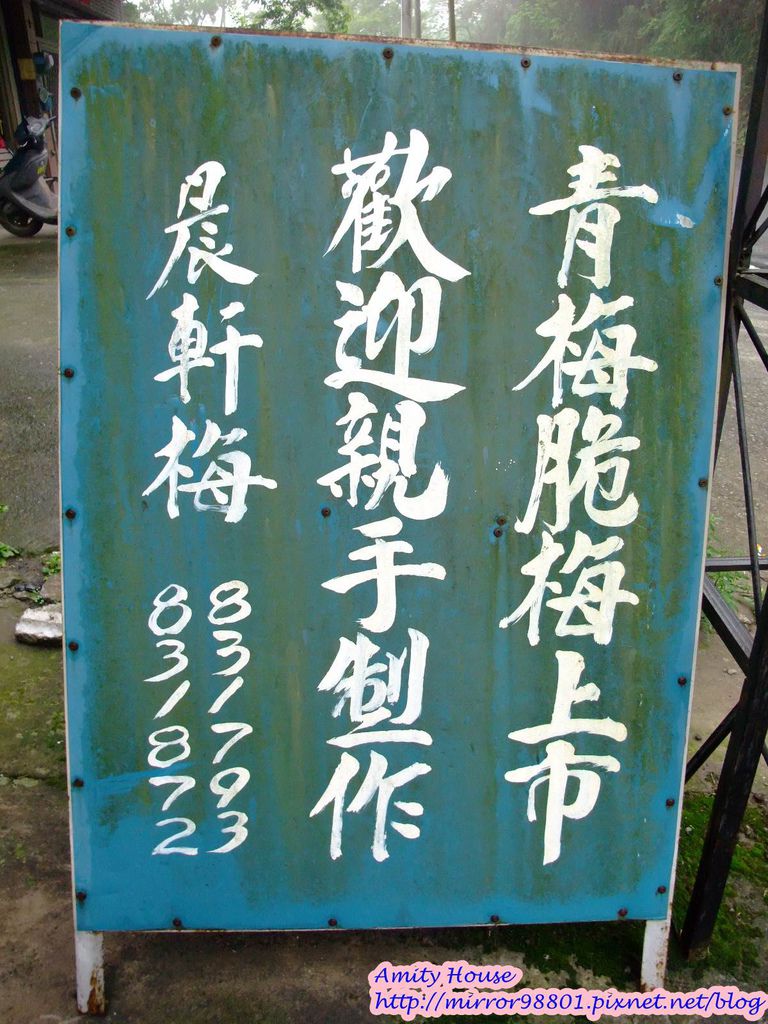 青梅脆梅上市
歡迎親手製作
晨軒梅
831793
831872
Amity House
http://mirror98801.pixnet.net/blog